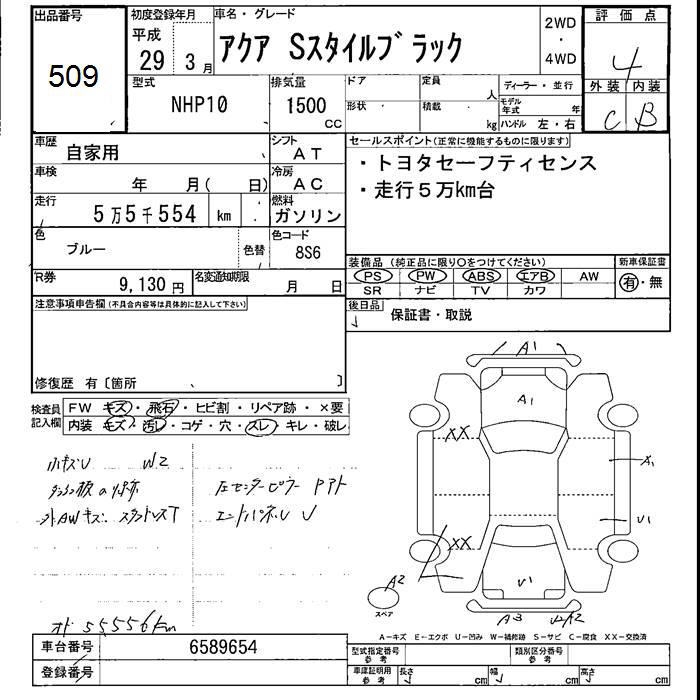 出品番号 初度登録年月 車名・グレード 2WD 評価点
509 平成 29 3月 アクア Sスタイルブラック ・ 4WD 4
型式 NHP10 排気量 1500 cc ドア 定員 人 ディーラー・並行 外装 内装
形状 積載 kg モデル年式 年 ハンドル 左・右 C B
車歴 自家用 シフト AT セールスポイント(正常に機能するものに限ります)
車検 年 月( 日) 冷房 AC ・トヨタセーフティセンス
走行 5万5千554 km 燃料 ガソリン ・走行5万km台
色 ブルー 色替 色コード 8S6
装備品 (純正品に限り〇をつけてください) 新車保証書
R券 9,130円 名変通知期限 月 日 PS PW ABS エアB AW 有・無
SR ナビ TV カワ
注意事項申告欄(不具合内容等は具体的に記入して下さい) 後日品 保証書・取説
修復歴 有〔箇所 、 〕
検査員記入欄 FW キズ・飛石・ヒビ割・リペア跡・×要
内装 キズ・汚レ・コゲ・穴・スレ・キレ・破レ
A1
A1
XX
A1
U1
XX
A2
スペア
U1
A3
小キズU W2
外AWキズ
オド 55556km
A-キズ E-エクボ U-凹み W-補修跡 S-サビ C-腐食 XX-交換済
車台番号 6589654 型式指定番号 参考 類別区分番号 参考
登録番号 車庫証明用 参考 長さ cm 幅 cm 高さ cm